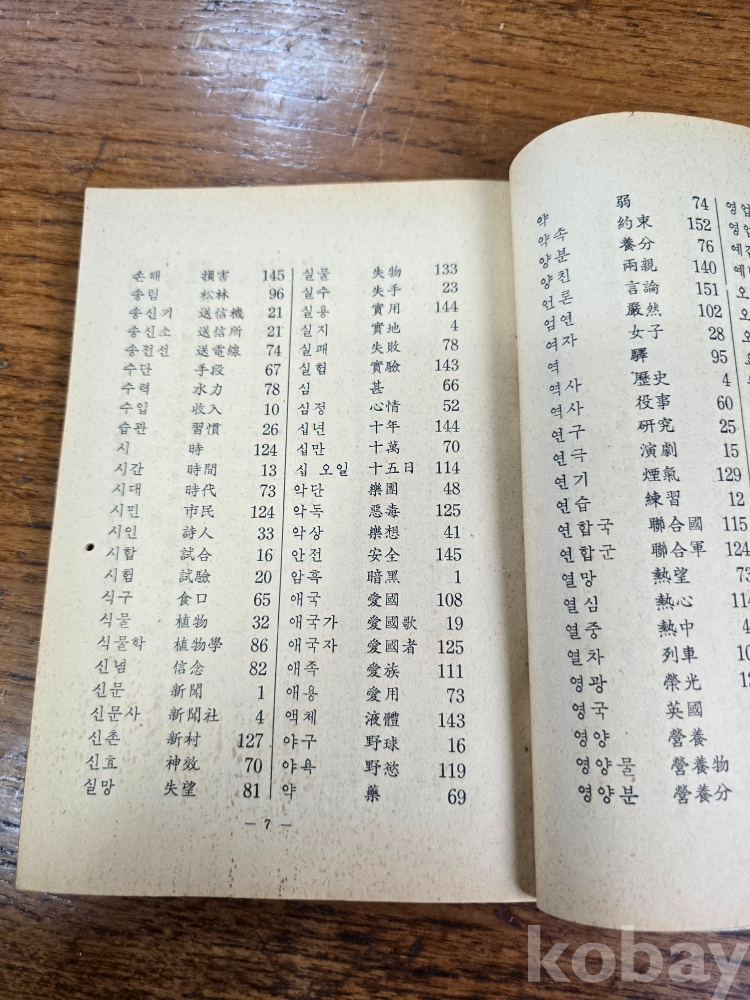 손해 損害 145
송림 松林 96
송신기 送信機 21
송신소 送信所 21
송전선 送電線 74
수단 手段 67
수력 水力 78
수입 收入 10
습관 習慣 26
시 時 124
시간 時間 13
시대 時代 73
시민 市民 124
시인 詩人 33
시합 試合 16
시험 試驗 20
식구 食口 65
식물 植物 32
식물학 植物學 86
신념 信念 82
신문 新聞 1
신문사 新聞社 4
신촌 新村 127
신효 神效 70
실망 失望 81
실물 失物 133
실수 失手 23
실용 實用 144
실지 實地 4
실패 失敗 78
실험 實驗 143
심 甚 66
심정 心情 52
십년 十年 144
십만 十萬 70
십 오일 十五日 114
악단 樂團 48
악독 惡毒 125
악상 樂想 41
안전 安全 145
암흑 暗黑 1
애국 愛國 108
애국가 愛國歌 19
애국자 愛國者 125
애족 愛族 111
애용 愛用 73
액체 液體 143
야구 野球 16
야욕 野慾 119
약 藥 69
— 7 —
약 弱 74
약속 約束 152
양분 養分 76
양친 兩親 140
언론 言論 151
엄연 嚴然 102
여자 女子 28
역 驛 95
역사 歷史 4
역사 役事 60
연구 硏究 25
연극 演劇 15
연기 煙氣 129
연습 練習 12
연합국 聯合國 115
연합군 聯合軍 124
열망 熱望 73
열심 熱心 114
열중 熱中
열차 列車
영광 榮光
영국 英國
영양 營養
영양물 營養物
영양분 營養分
영업
영업
kobay